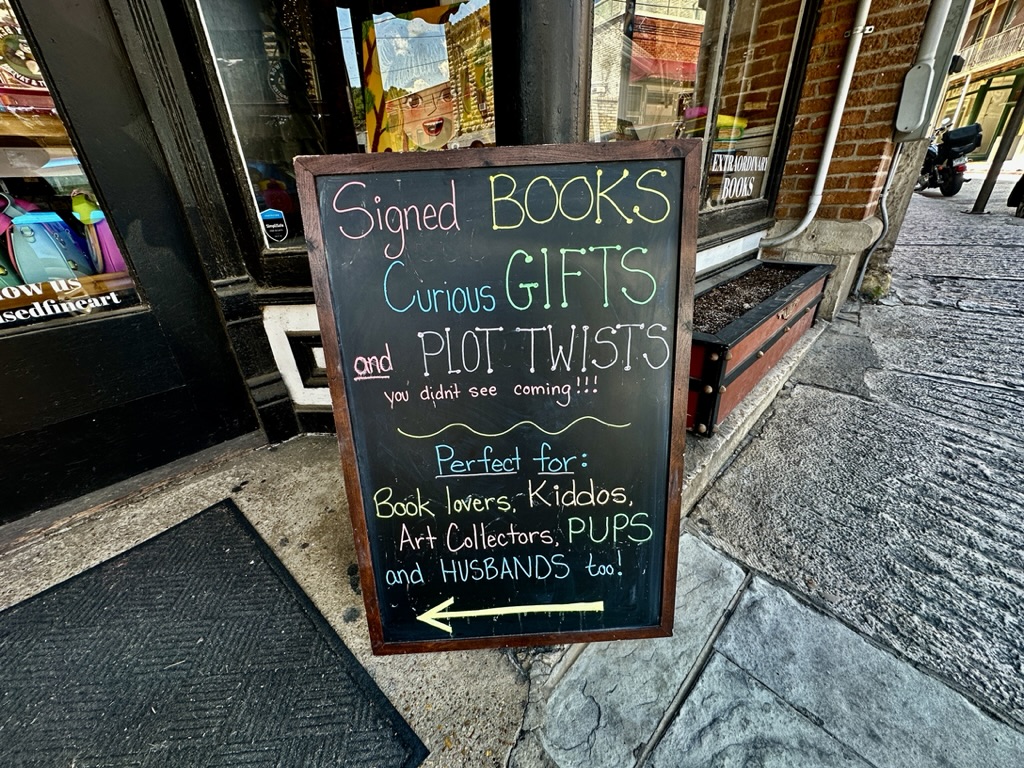 Signed BOOKS
Curious GIFTS
and PLOT TWISTS
you didn't see coming!!!
Perfect for:
Book lovers, Kiddos,
Art Collectors, PUPS
and HUSBANDS too!
EXTRAORDINARY
BOOKS
SimpliSafe
us